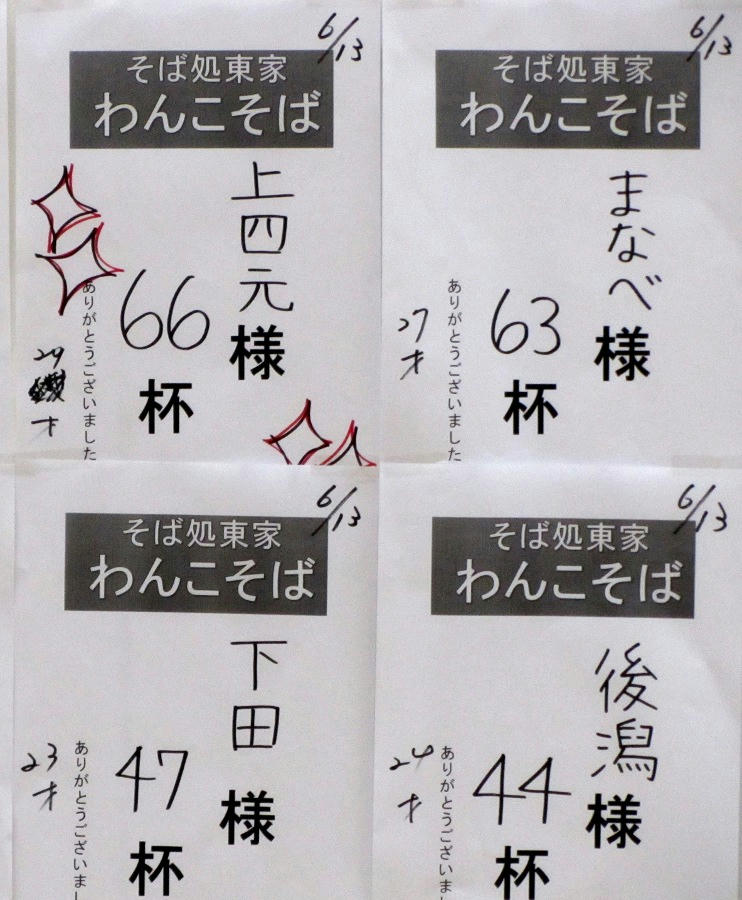 6/13
そば処東家
わんこそば
上四元様
66杯
ありがとうございました
29才
6/13
そば処東家
わんこそば
まなべ様
63杯
ありがとうございました
27才
6/13
そば処東家
わんこそば
下田様
47杯
ありがとうございまし
23才
6/13
そば処東家
わんこそば
後潟様
44杯
ありがとうございまし
24才